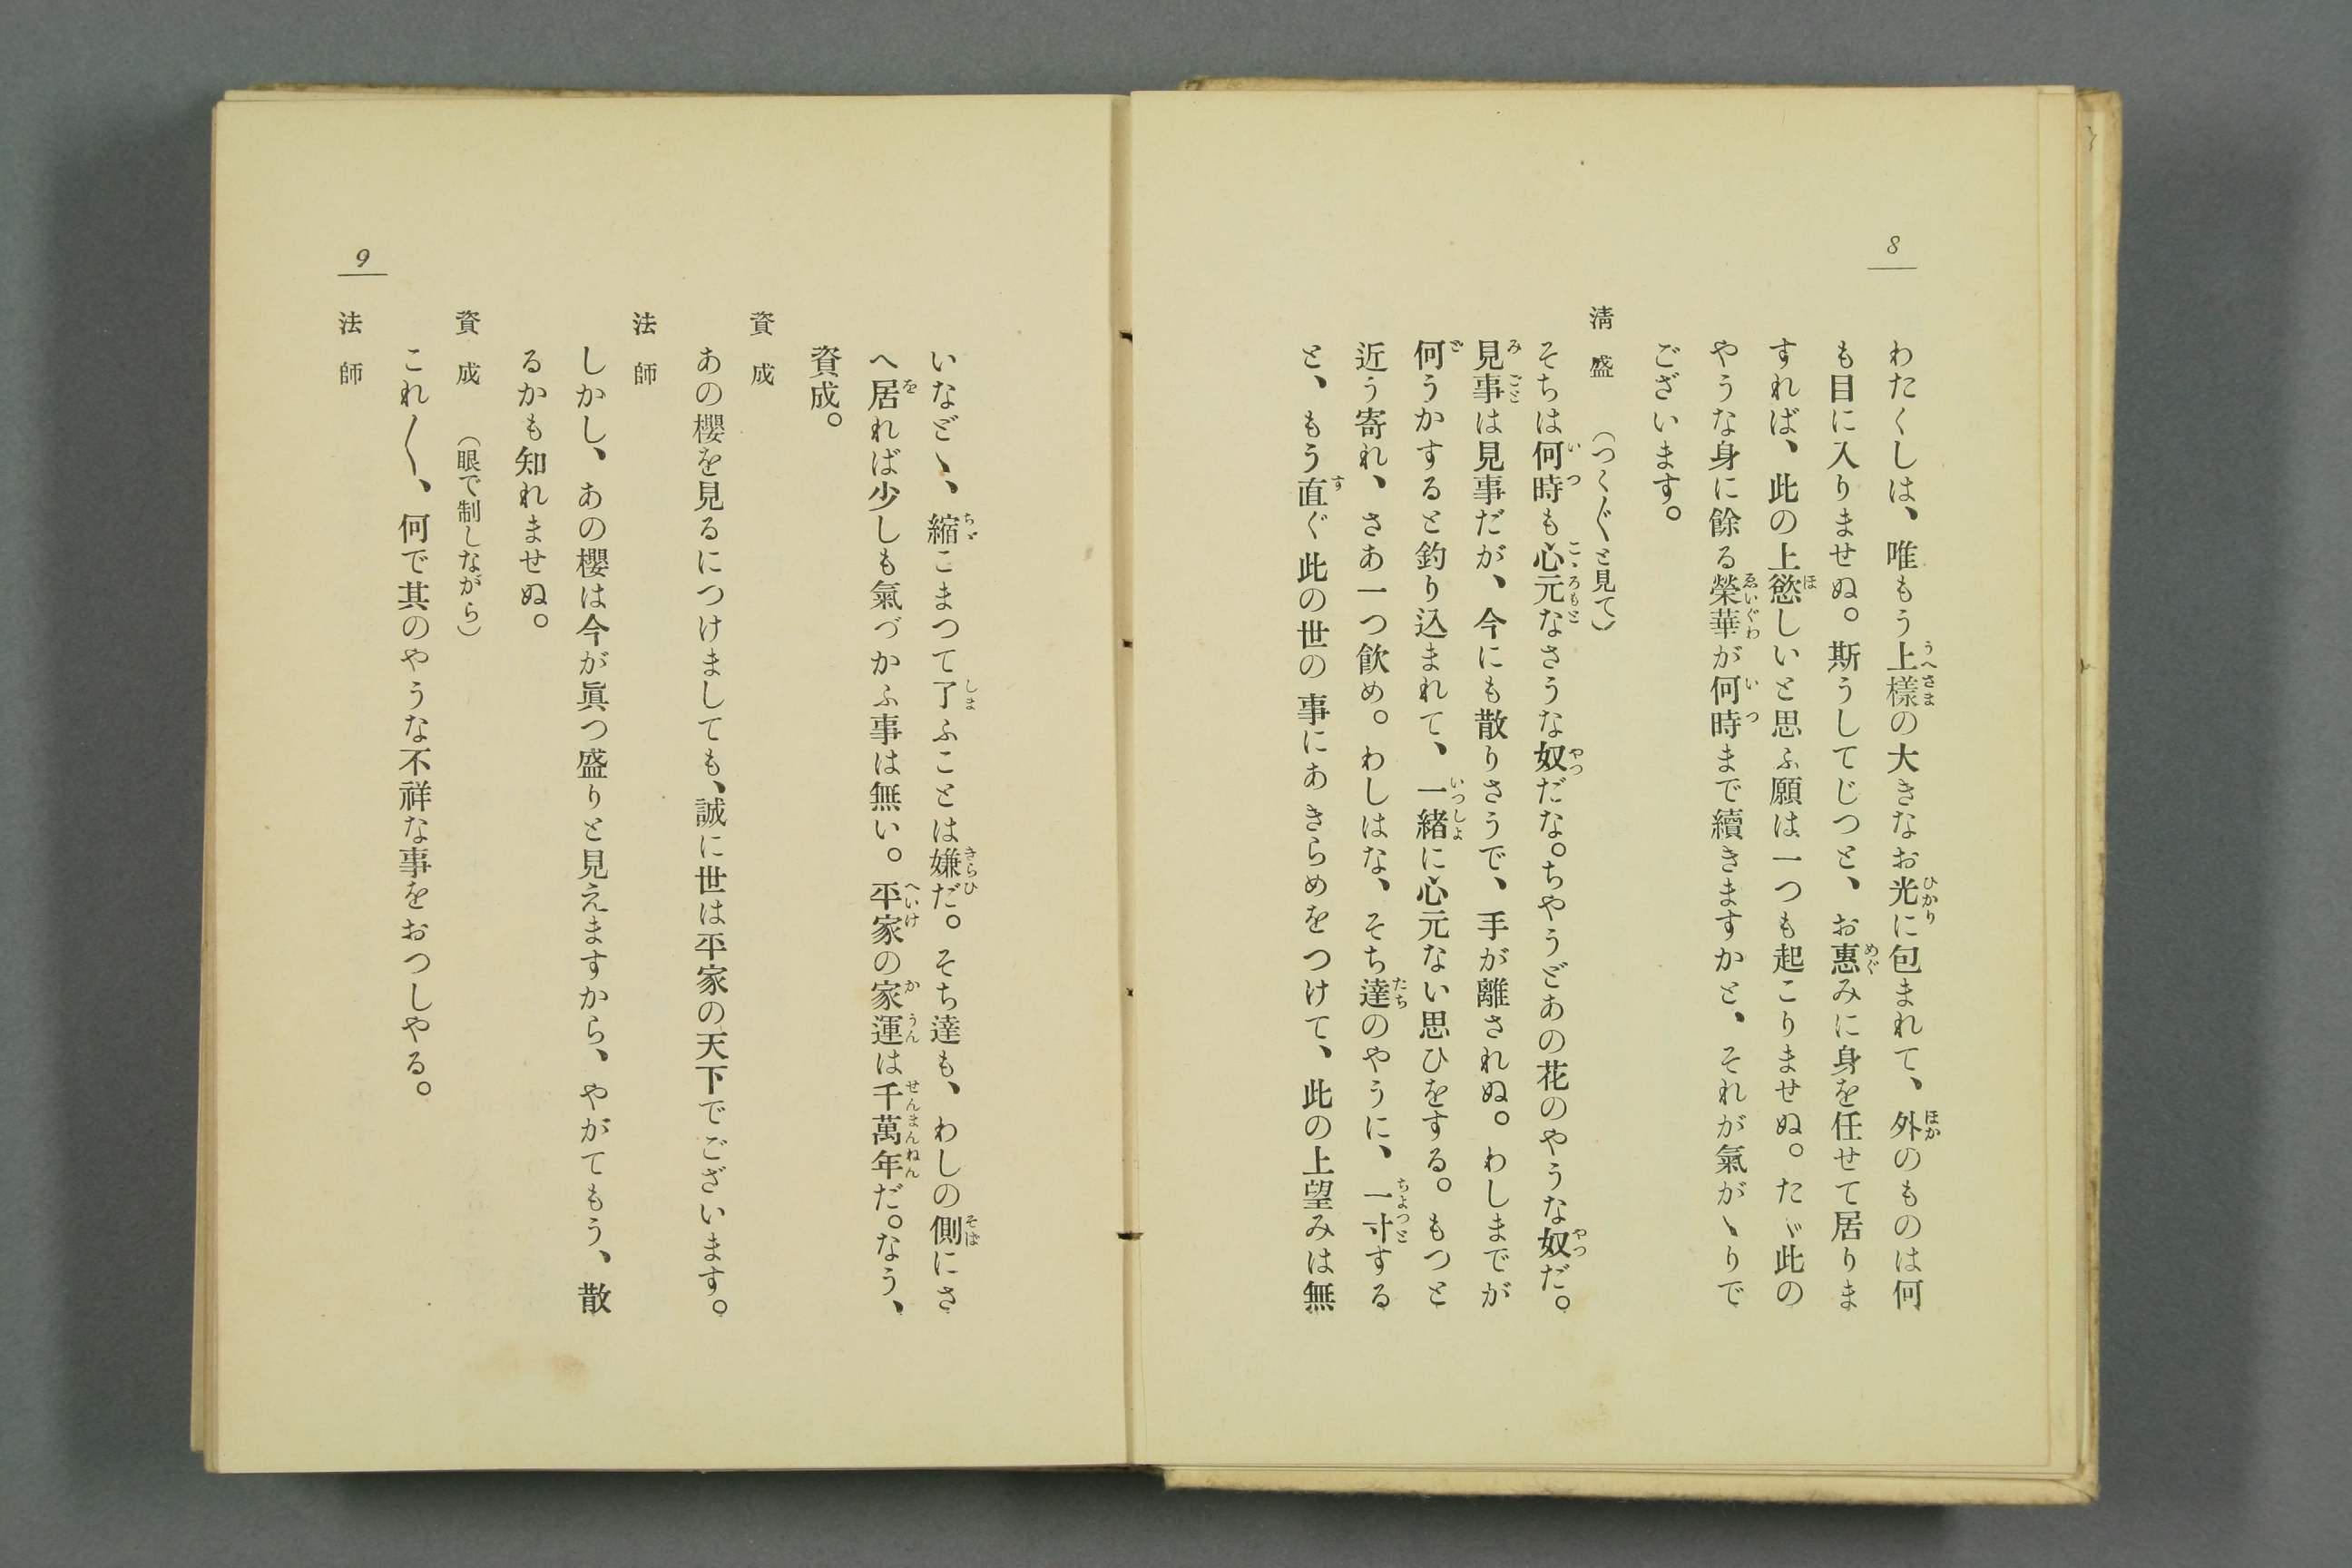 8
わたくしは、唯もう上樣の大きなお光に包まれて、外のものは何
も目に入りませぬ。斯うしてじつと、お惠みに身を任せて居りま
すれば、此の上慾しいと思ふ願は一つも起こりませぬ。たゞ此の
やうな身に餘る榮華が何時まで續きますかと、それが氣がゝりで
ございます。
淸盛 (つく〴〵と見て)
そちは何時も心元なさうな奴だな。ちやうどあの花のやうな奴だ。
見事は見事だが、今にも散りさうで、手が離されぬ。わしまでが
何うかすると釣り込まれて、一緖に心元ない思ひをする。もつと
近う寄れ、さあ一つ飮め。わしはな、そち達のやうに、一寸する
と、もう直ぐ此の世の事にあきらめをつけて、此の上望みは無
いなどゝ、縮こまつて了ふことは嫌だ。そち達も、わしの側にさ
へ居れば少しも氣づかふ事は無い。平家の家運は千萬年だ。なう、
資成。
資成
あの櫻を見るにつけましても、誠に世は平家の天下でございます。
法師
しかし、あの櫻は今が眞つ盛りと見えますから、やがてもう、散
るかも知れませぬ。
資成 (眼で制しながら)
これ〳〵、何で其のやうな不祥な事をおつしやる。
法師
9